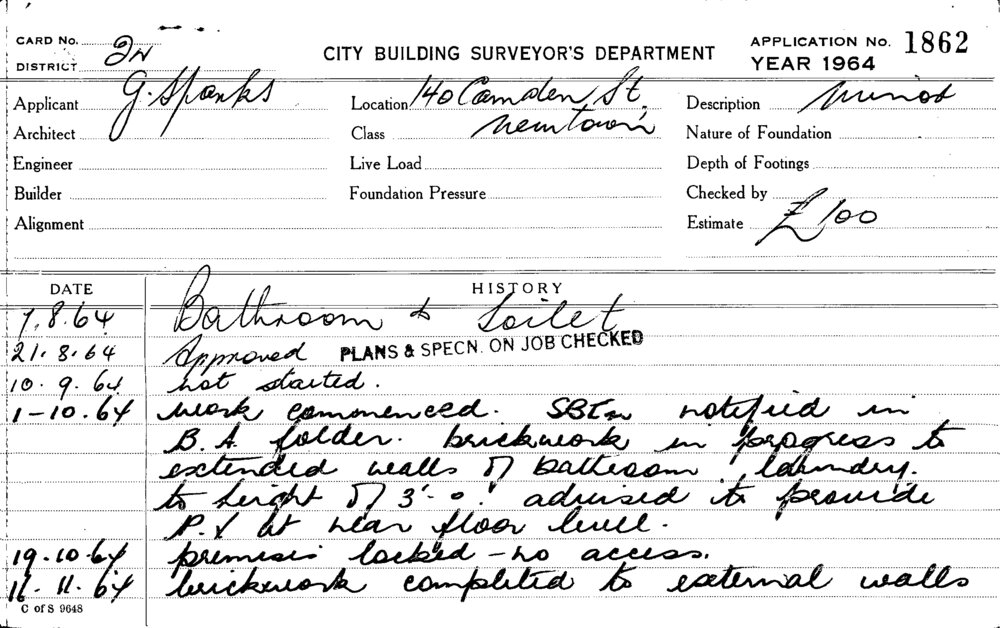 CARD No. 2N
DISTRICT
CITY BUILDING SURVEYOR'S DEPARTMENT
APPLICATION No. 1862
YEAR 1964
Applicant G. Sparks
Location 140 Camden St.
Description Minor
Architect
Class Newtown
Nature of Foundation
Engineer
Live Load
Depth of Footings
Builder
Foundation Pressure
Checked by
Alignment
Estimate £100
DATE
HISTORY
7.8.64 Bathroom & Toilet
21.8.64 Approved PLANS & SPECN. ON JOB CHECKED
10.9.64 not started.
1-10.64 work commenced. notified in
B.A. folder. brickwork in progress to
extended walls of bathroom, laundry.
to height of 3'-0". advised to provide
at near floor level.
19.10.64 premises locked - no access.
11.64 brickwork completed to external walls
C of S 9648